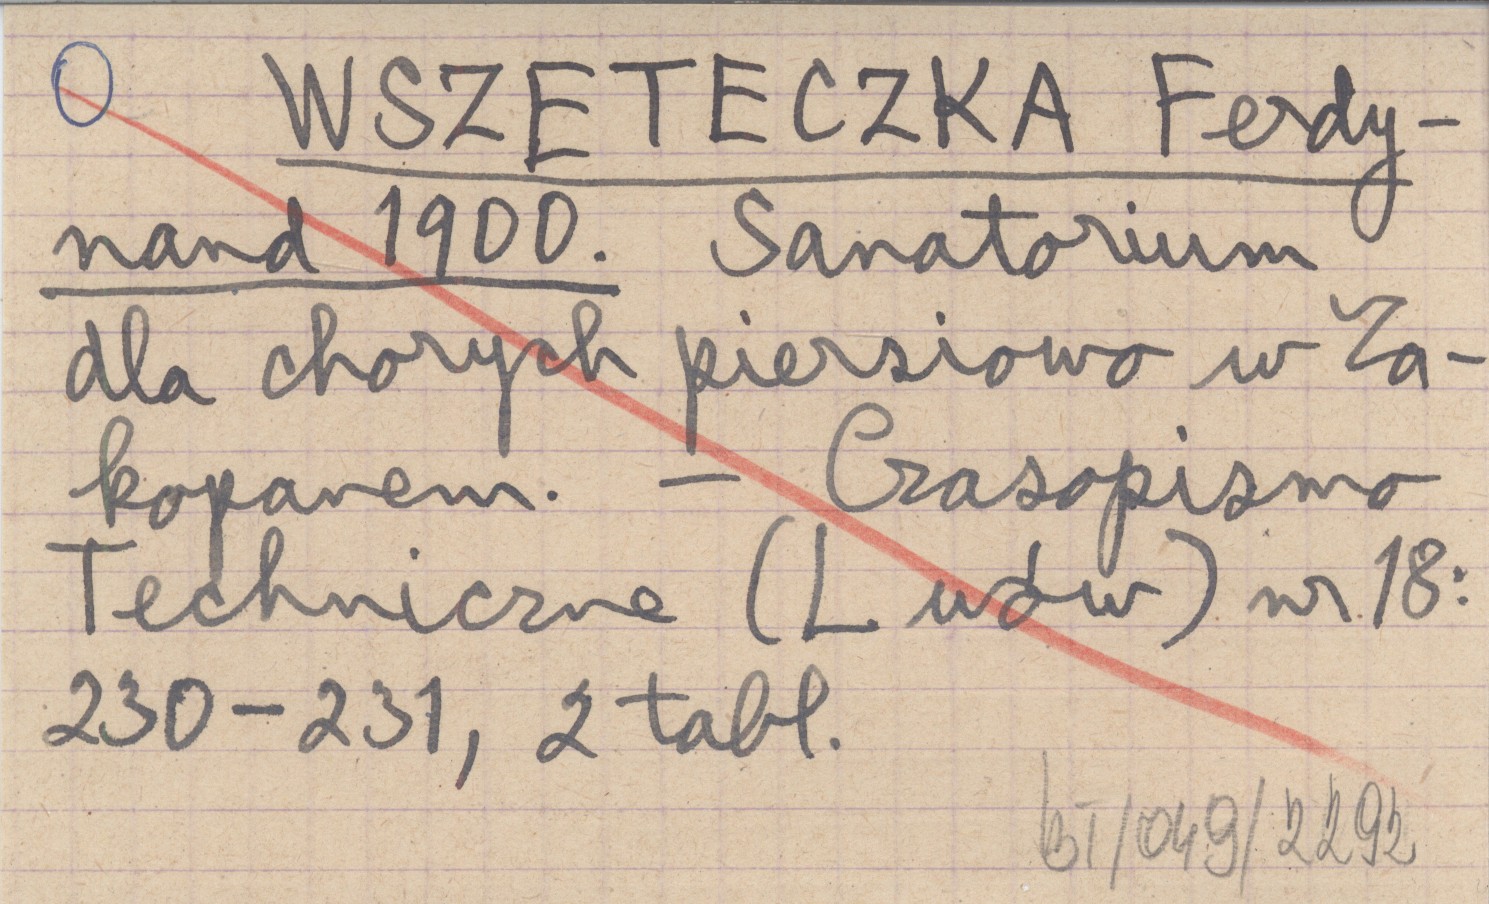 WSZETECZKA Ferdy-
nand 1900. Sanatorium
dla chorych piersiowo w Za-
kopanem. — Czasopismo
Techniczne (Lwów) nr 18:
230-231, 2 tabl.
BT/049/2292